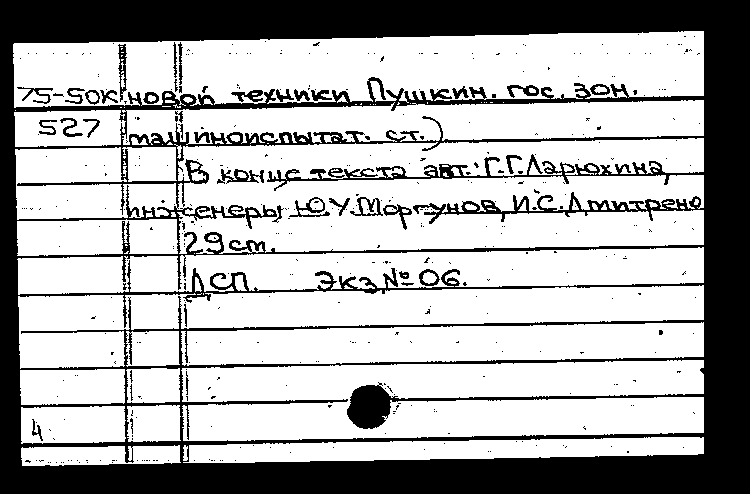 75-50к новой техники Пушкин. гос. зон.
527 машиноиспытат. ст.)
В конце текста авт.: Г.Г.Ларюхина,
инженеры Ю.У.Моргунов, И.С.Дмитрено
29 ст.
ДСП. Экз.№ 06.
4